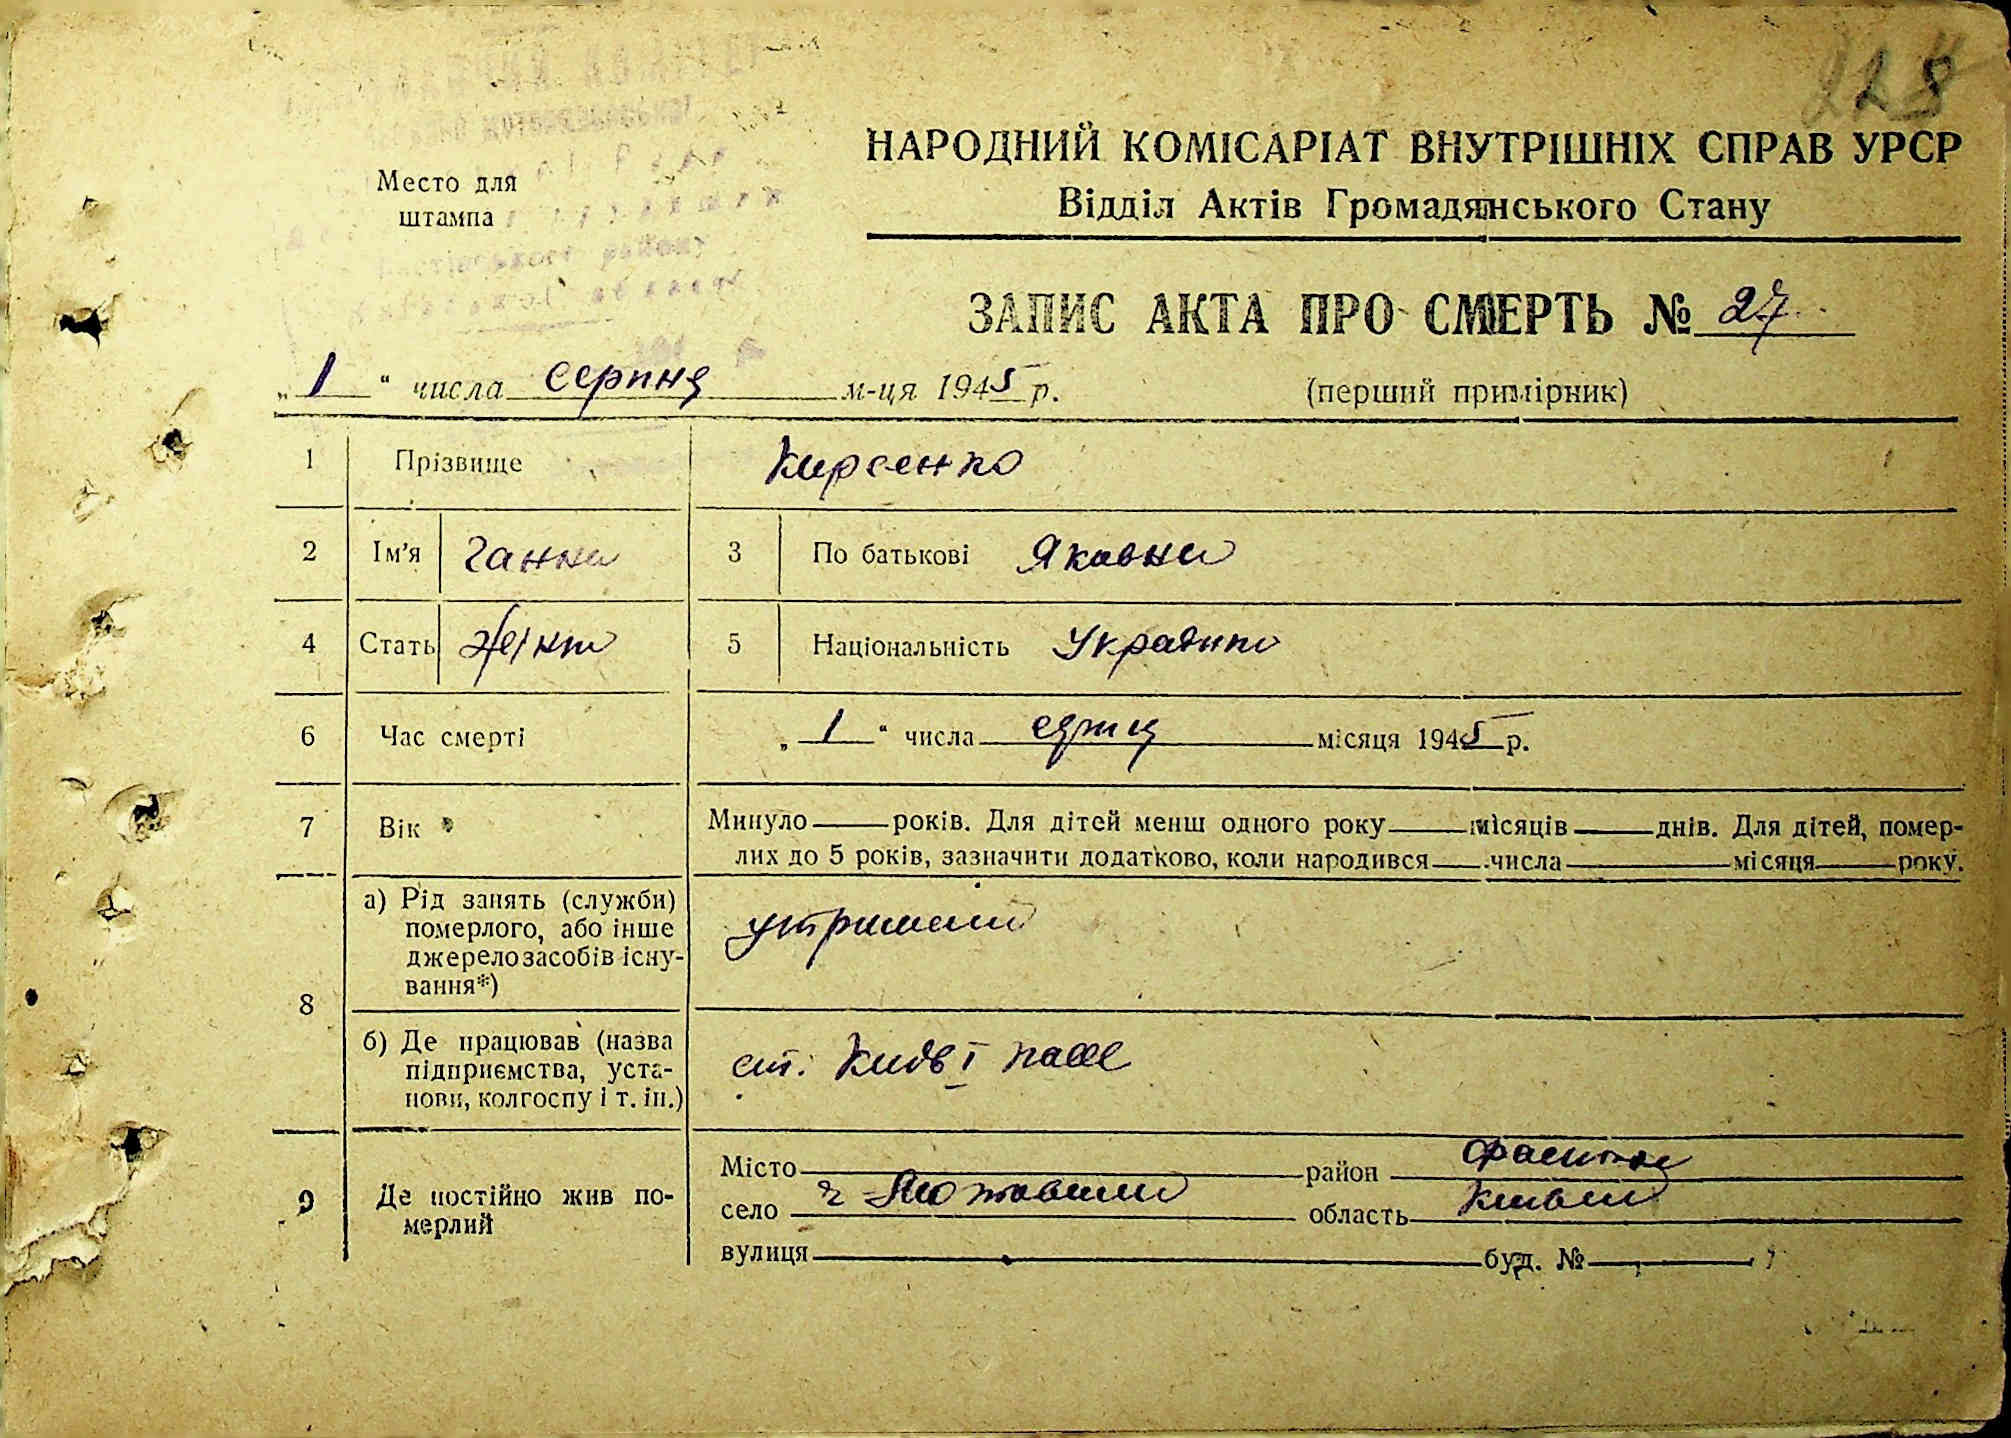 228
НАРОДНИЙ КОМІСАРІАТ ВНУТРІШНІХ СПРАВ УРСР
Відділ Актів Громадянського Стану
Место для
штампа
ЗАПИС АКТА ПРО СМЕРТЬ № 27
„1“ числа серпня м-ця 1945 р.
(перший примірник)
1 Прізвище Кирсенко
2 Ім'я Ганна 3 По батькові Яковна
4 Стать 5 Національність
6 Час смерті „1“ числа місяця 1945 р.
7 Вік Минуло років. Для дітей менш одного року місяців днів. Для дітей, помер-
лих до 5 років, зазначити додатково, коли народився числа місяця року.
8 а) Рід занять (служби)
померлого, або інше
джерело засобів існу-
вання*)
б) Де працював (назва
підприємства, уста-
нови, колгоспу і т. ін.)
ст. Київ I
9 Де постійно жив по-
мерлий
Місто район
село область
вулиця буд. №